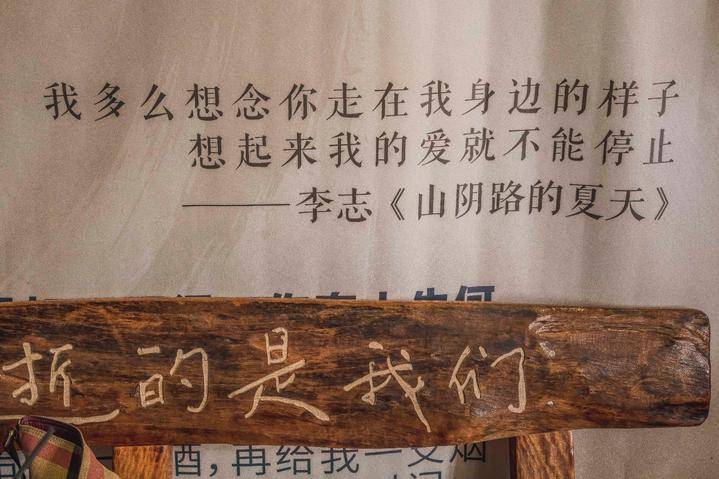 我多么想念你走在我身边的样子
想起来我的爱就不能停止
——李志《山阴路的夏天》
逝的是我们
酒，再给我一支烟